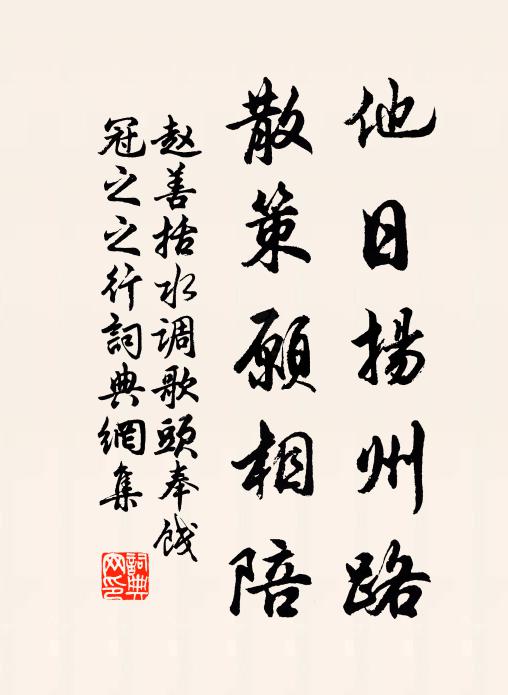 他日揚州路
散策願相陪
赵善括水调歌頭奉餞
冠之之行詞典網集
詞典網印